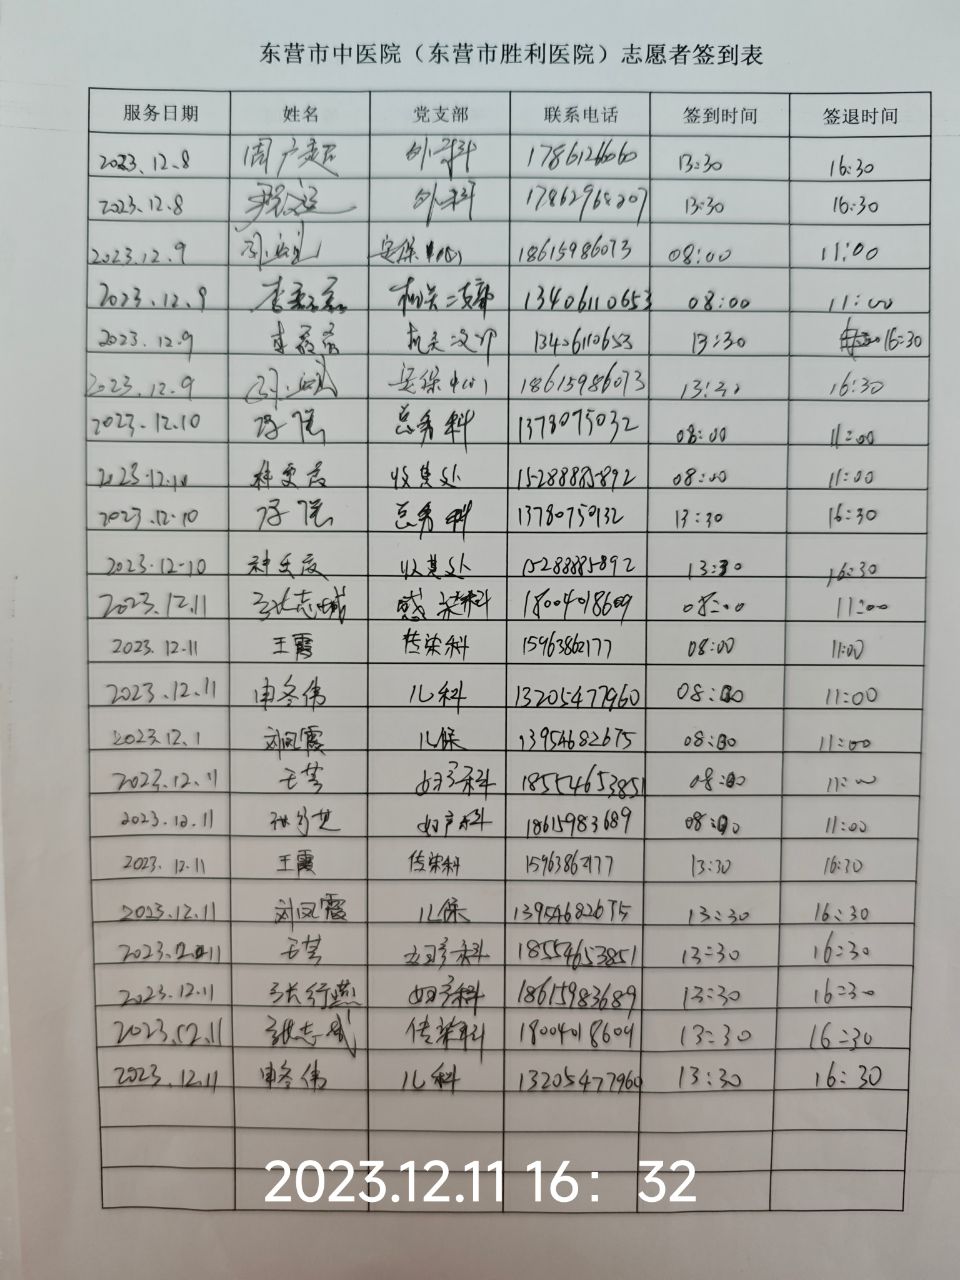 东营市中医院（东营市胜利医院）志愿者签到表
服务日期 姓名 党支部 联系电话 签到时间 签退时间
2023.12.8 外科 17861266060 13:30 16:30
2023.12.8 外科 13:30 16:30
2023.12.9 安保中心 18615986073 08:00 11:00
2023.12.9 李 机关二支部 13406110653 08:00 11:00
2023.12.9 李 机关二支部 13406110653 13:30 16:30
2023.12.9 安保中心 18615986073 13:30 16:30
2023.12.10 总务科 08:00 11:00
2023.12.10 收费处 15288885892 08:00 11:00
2023.12.10 总务科 13780750132 13:30 16:30
2023.12.10 收费处 15288885892 13:30 16:30
2023.12.11 张志斌 感染科 18004018609 08:00 11:00
2023.12.11 王霞 传染科 15963862177 08:00 11:00
2023.12.11 申冬伟 儿科 13205477960 08:00 11:00
2023.12.1 刘凤霞 儿保 13954682675 08:00 11:00
2023.12.11 王芳 妇产科 18554653851 08:00 11:00
2023.12.11 妇产科 18615983689 08:00 11:00
2023.12.11 王霞 传染科 15963862177 13:30 16:30
2023.12.11 刘凤霞 儿保 13954682675 13:30 16:30
2023.12.11 王芳 妇产科 18554653851 13:30 16:30
2023.12.11 张行燕 妇产科 18615983689 13:30 16:30
2023.12.11 张志斌 传染科 18004018609 13:30 16:30
2023.12.11 申冬伟 儿科 13205477960 13:30 16:30
2023.12.11 16：32